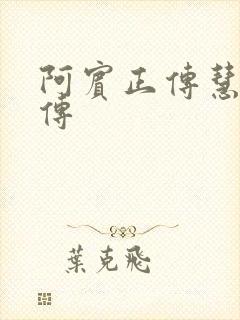 阿賓正傳慧
傳
葉克飛